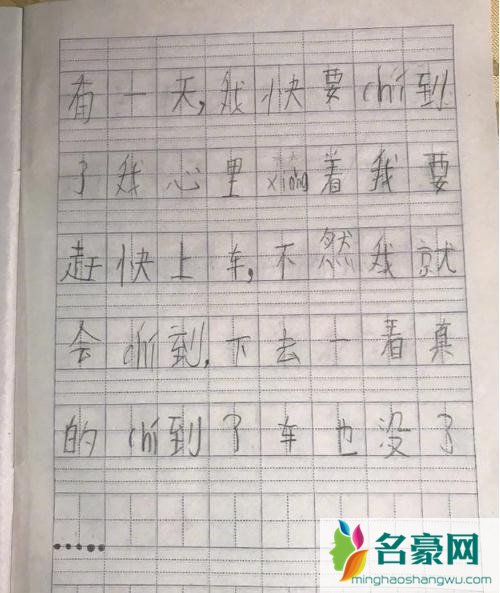 有一天,我快要chi到
了我心里xiang着我要
赶快上车,不然我就
会chi到,下去一看真
的chi到了车也没了
名豪网
minghaoshangwu.com